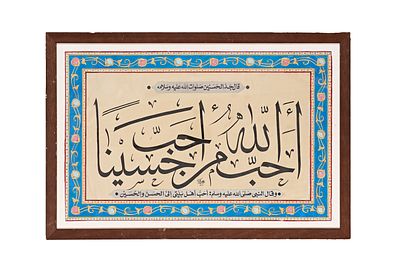 قال جد الحسنين صلوات الله عليه وسلامه
أحب الله من أحب حسينا
وقال النبي صلى الله عليه وسلم أحب أهل بيتي إلي الحسن والحسين